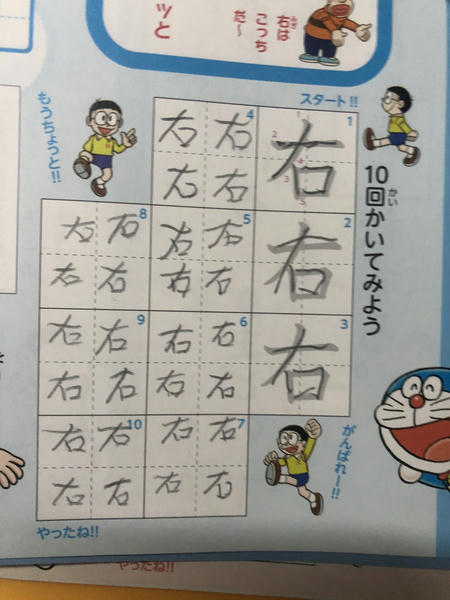 右は
こっち
だ〜
ッと
スタート!!
10回かいてみよう
かい
1
右
2
右
3
右
4
右 右
右 右
5
右 右
右 右
6
右 右
右 右
7
右 右
右 右
8
右 右
右 右
9
右 右
右 右
10
右 右
右 右
もうちょっと!!
がんばれー!!
やったね!!
やったね!!